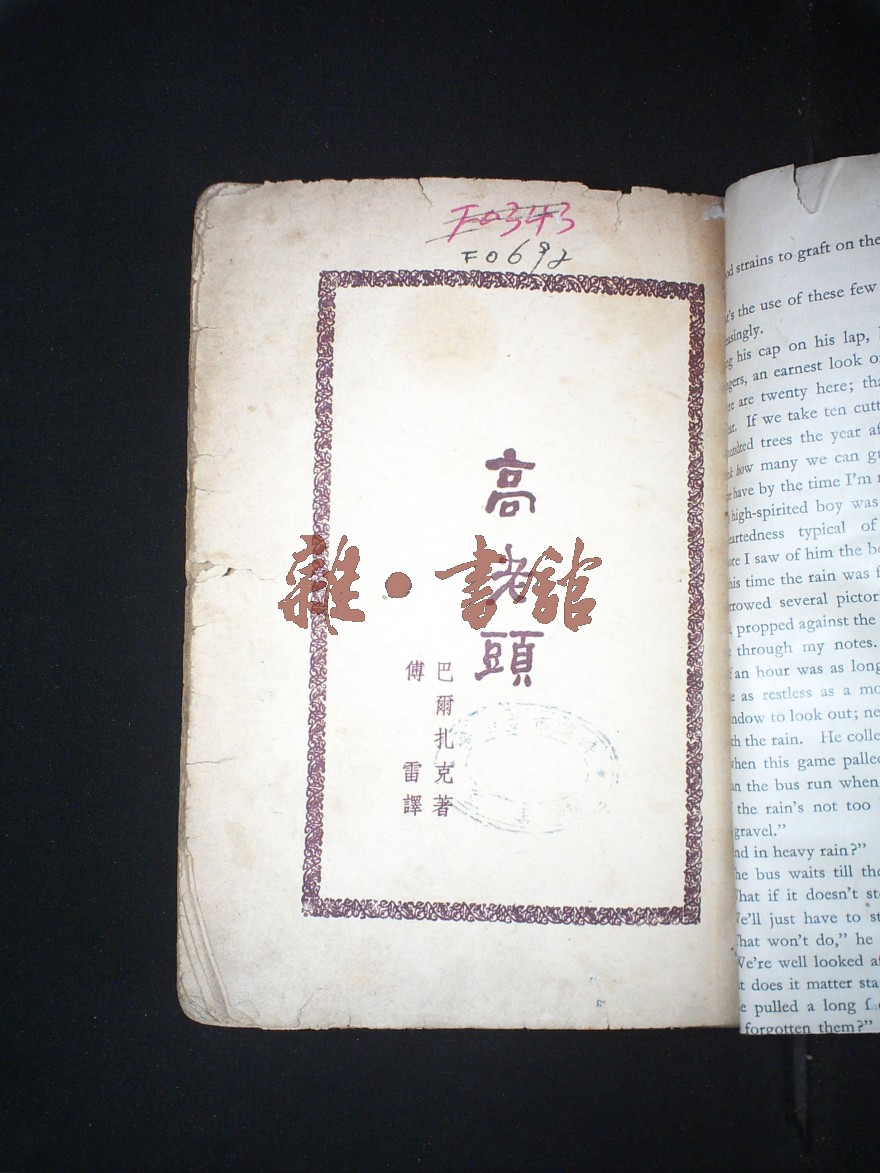 F0343
F0692
高老頭
巴爾扎克著
傅雷譯
雜·書舘
strains to graft on the
the use of these few
his cap on his lap,
an earnest look
are twenty here;
If we take ten
trees the year
how many we can
have by the time I'm
high-spirited boy was
typical of
I saw of him the
his time the rain was
several
propped against the
through my notes.
an hour was as long
as restless as a
to look out;
the rain. He
when this game palled
the bus run when
the rain's not too
gravel."
in heavy rain?"
bus waits till the
What if it doesn't
We'll just have to
That won't do," he
We're well looked
does it matter
pulled a long
forgotten them?"